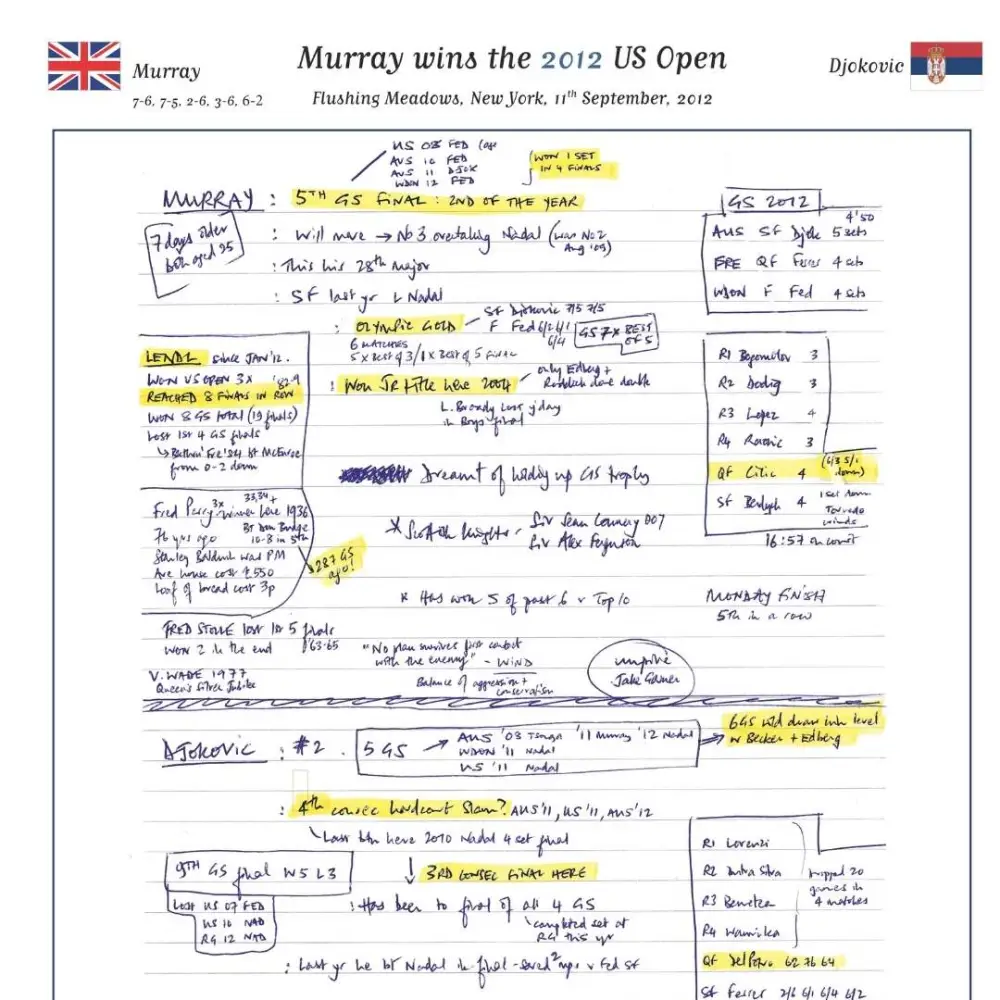 Murray wins the 2012 US Open
Murray
Djokovic
7-6, 7-5, 2-6, 3-6, 6-2
Flushing Meadows, New York, 11th September, 2012
US 08 FED
AUS 10 FED
AUS 11 DJOK
WDON 12 FED
WON 1 SET
IN 4 FINALS
MURRAY : 5TH GS FINAL : 2ND OF THE YEAR
7 days older
both aged 25
: Will move → No 3 overtaking Nadal (was No 2
Aug '09)
: This his 28th major
: SF last yr L Nadal
: OLYMPIC GOLD
SF Djokovic 7/5 7/5
F Fed 6/2 6/1
6/4
GS 7 x BEST
OF 5
6 MATCHES
5 x Best of 3 / 1 x Best of 5 Final
: Won JR title here 2004
only Edberg +
Roddick done double
L. Broady lost yday
in Boys final
Dreamt of holding up GS trophy
* Scottish knights - Sir Sean Connery 007
Sir Alex Ferguson
* Has won 5 of past 6 v Top 10
"No plan survives first contact
with the enemy" - WIND
Balance of aggression +
conservation
umpire
Jake Garner
GS 2012
4'50
AUS SF Djok 5 sets
FRE QF Ferrer 4 sets
WDON F Fed 4 sets
R1 Bogomolov 3
R2 Dodig 3
R3 Lopez 4
R4 Raonic 3
QF Cilic 4 (6/3 5/1
down)
SF Berdych 4 1 set down
Tornado
winds
16:57 on court
MONDAY FINISH
5TH in a row
LENDL since JAN '12.
WON US OPEN 3X
REACHED 8 FINALS IN ROW
WON 8 GS TOTAL (19 finals)
Lost 1st 4 GS finals
Fre '84 bt McEnroe
from 0-2 down
Fred Perry 3x winner here 1936
33,34 +
76 yrs ago
BT Don Budge
10-8 in 5th
Stanley Baldwin was PM
Ave house cost £550
Loaf of bread cost 3p
287 GS
ago!
FRED STOLLE lost 1st 5 finals
WON 2 in the end '63-65
V. WADE 1977
Queen's Silver Jubilee
DJOKOVIC : #2 .
5 GS → AUS '08 Tsonga '11 Murray '12 Nadal
WDON '11 Nadal
US '11 Nadal
6GS wld draw him level
w Becker + Edberg
: 4th consec hardcourt Slam? AUS '11, US '11, AUS '12
Last btn here 2010 Nadal 4 set final
9TH GS final W5 L3
3RD CONSEC FINAL HERE
LOST US 07 FED
US 10 NAD
RG 12 NAD
: Has been to final of all 4 GS
completed set at
RG this yr
: Last yr he bt Nadal in final - saved 2 mps v Fed SF
R1 Lorenzi
R2 Dutra Silva
R3 Benneteau
R4 Wawrinka
dropped 20
games in
4 matches
QF Del Potro 62 76 64
SF Ferrer 2/6 6/1 6/4 6/2